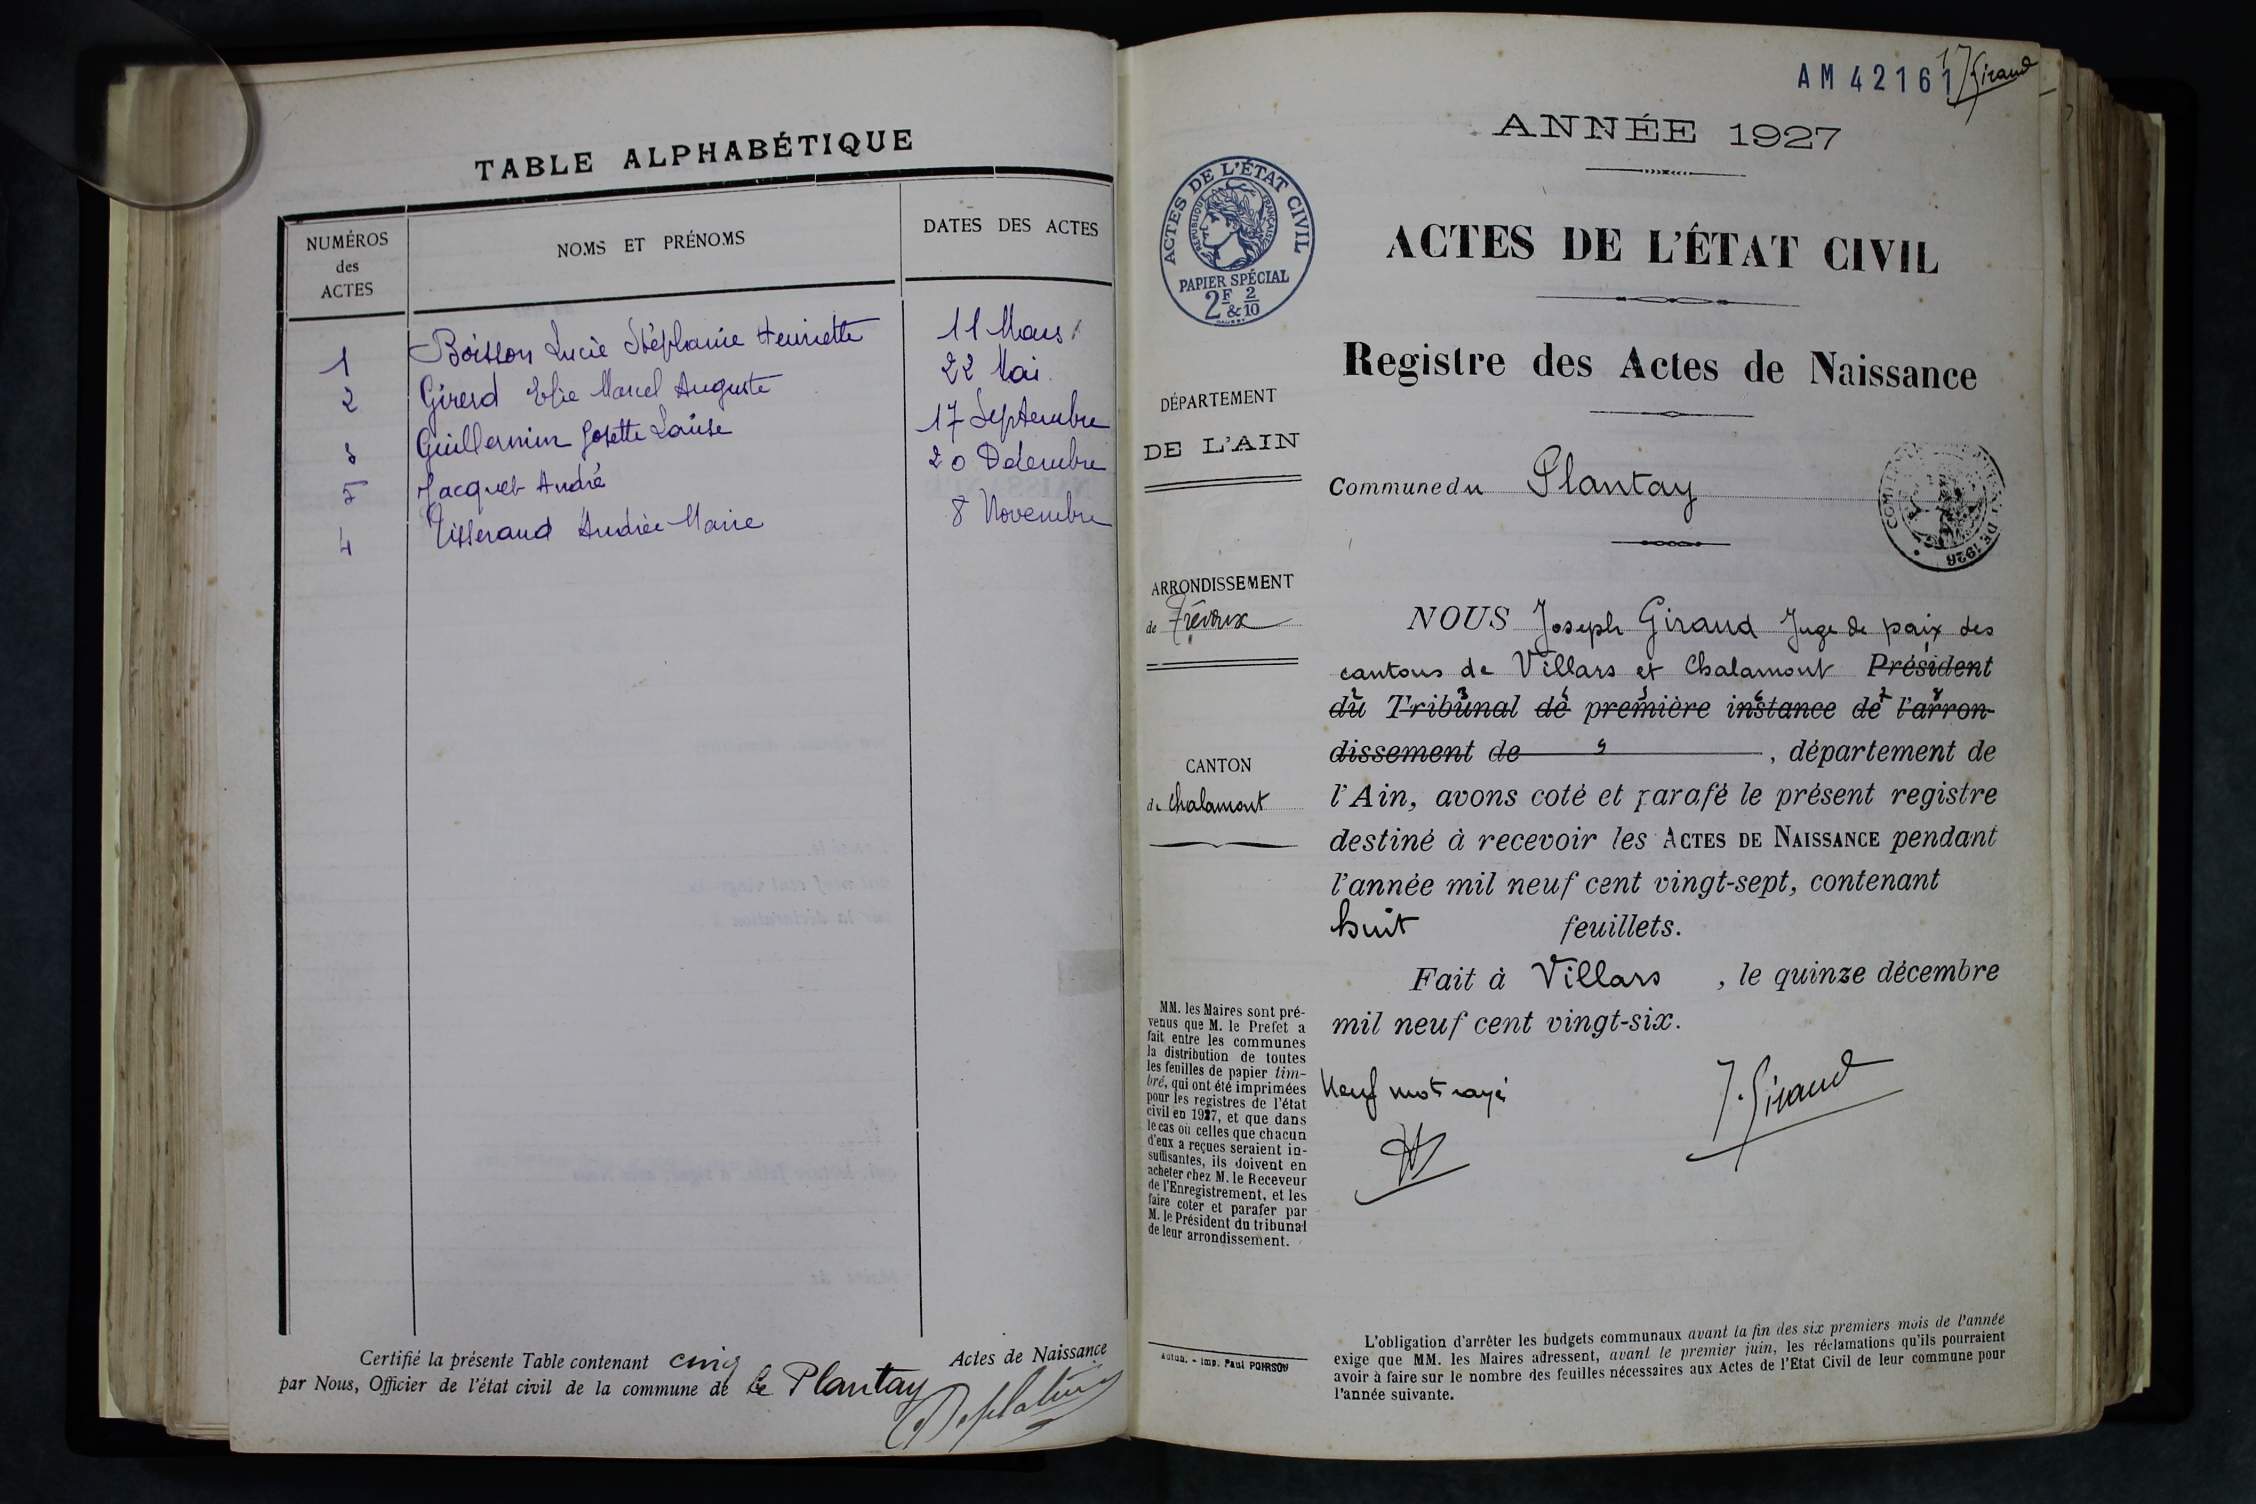 TABLE ALPHABÉTIQUE
NUMÉROS des ACTES
NOMS ET PRÉNOMS
DATES DES ACTES
1 Boisson Lucie Stéphanie Henriette 11 Mars
2 Girerd Elie Marcel Auguste 22 Mai
3 Guillermin Josette Louise 17 Septembre
5 Jacquet André 20 Décembre
4 Tisserand Andrée Marie 8 Novembre
Certifié la présente Table contenant cinq Actes de Naissance
par Nous, Officier de l'état civil de la commune de Le Plantay
AM 42161
1 J Giraud
ANNÉE 1927
ACTES DE L'ÉTAT CIVIL
RÉPUBLIQUE FRANÇAISE
PAPIER SPÉCIAL
2F & 2/10
ACTES DE L'ÉTAT CIVIL
Registre des Actes de Naissance
DÉPARTEMENT
DE L'AIN
Commune du Plantay
DE 1926
ARRONDISSEMENT
de Trévoux
CANTON
de Chalamont
NOUS Joseph Giraud Juge de paix des
cantons de Villars et Chalamont Président
du Tribunal de première instance de l'arron-
dissement de , département de
l'Ain, avons coté et parafé le présent registre
destiné à recevoir les ACTES DE NAISSANCE pendant
l'année mil neuf cent vingt-sept, contenant
huit feuillets.
Fait à Villars , le quinze décembre
mil neuf cent vingt-six.
Neuf mot rayé
J. Giraud
MM. les Maires sont pré-
venus que M. le Préfet a
fait entre les communes
la distribution de toutes
les feuilles de papier tim-
bré, qui ont été imprimées
pour les registres de l'état
civil en 1927, et que dans
le cas où celles que chacun
d'eux a reçues seraient in-
suffisantes, ils doivent en
acheter chez M. le Receveur
de l'Enregistrement, et les
faire coter et parafer par
M. le Président du tribunal
de leur arrondissement.
Autun. - Imp. Paul POIRSON
L'obligation d'arrêter les budgets communaux avant la fin des six premiers mois de l'année
exige que MM. les Maires adressent, avant le premier juin, les réclamations qu'ils pourraient
avoir à faire sur le nombre des feuilles nécessaires aux Actes de l'Etat Civil de leur commune pour
l'année suivante.